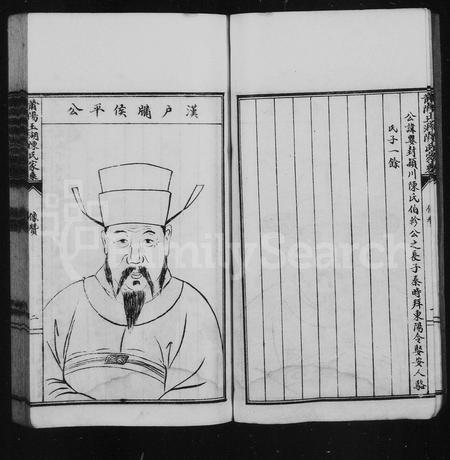 公諱嬰封潁川陳氏伯軫公之長子秦時拜東陽令娶安人駱
氏子一餘
漢戶牖侯平公
莆陽玉湖陳氏家乘
像贊
二
FamilySearch